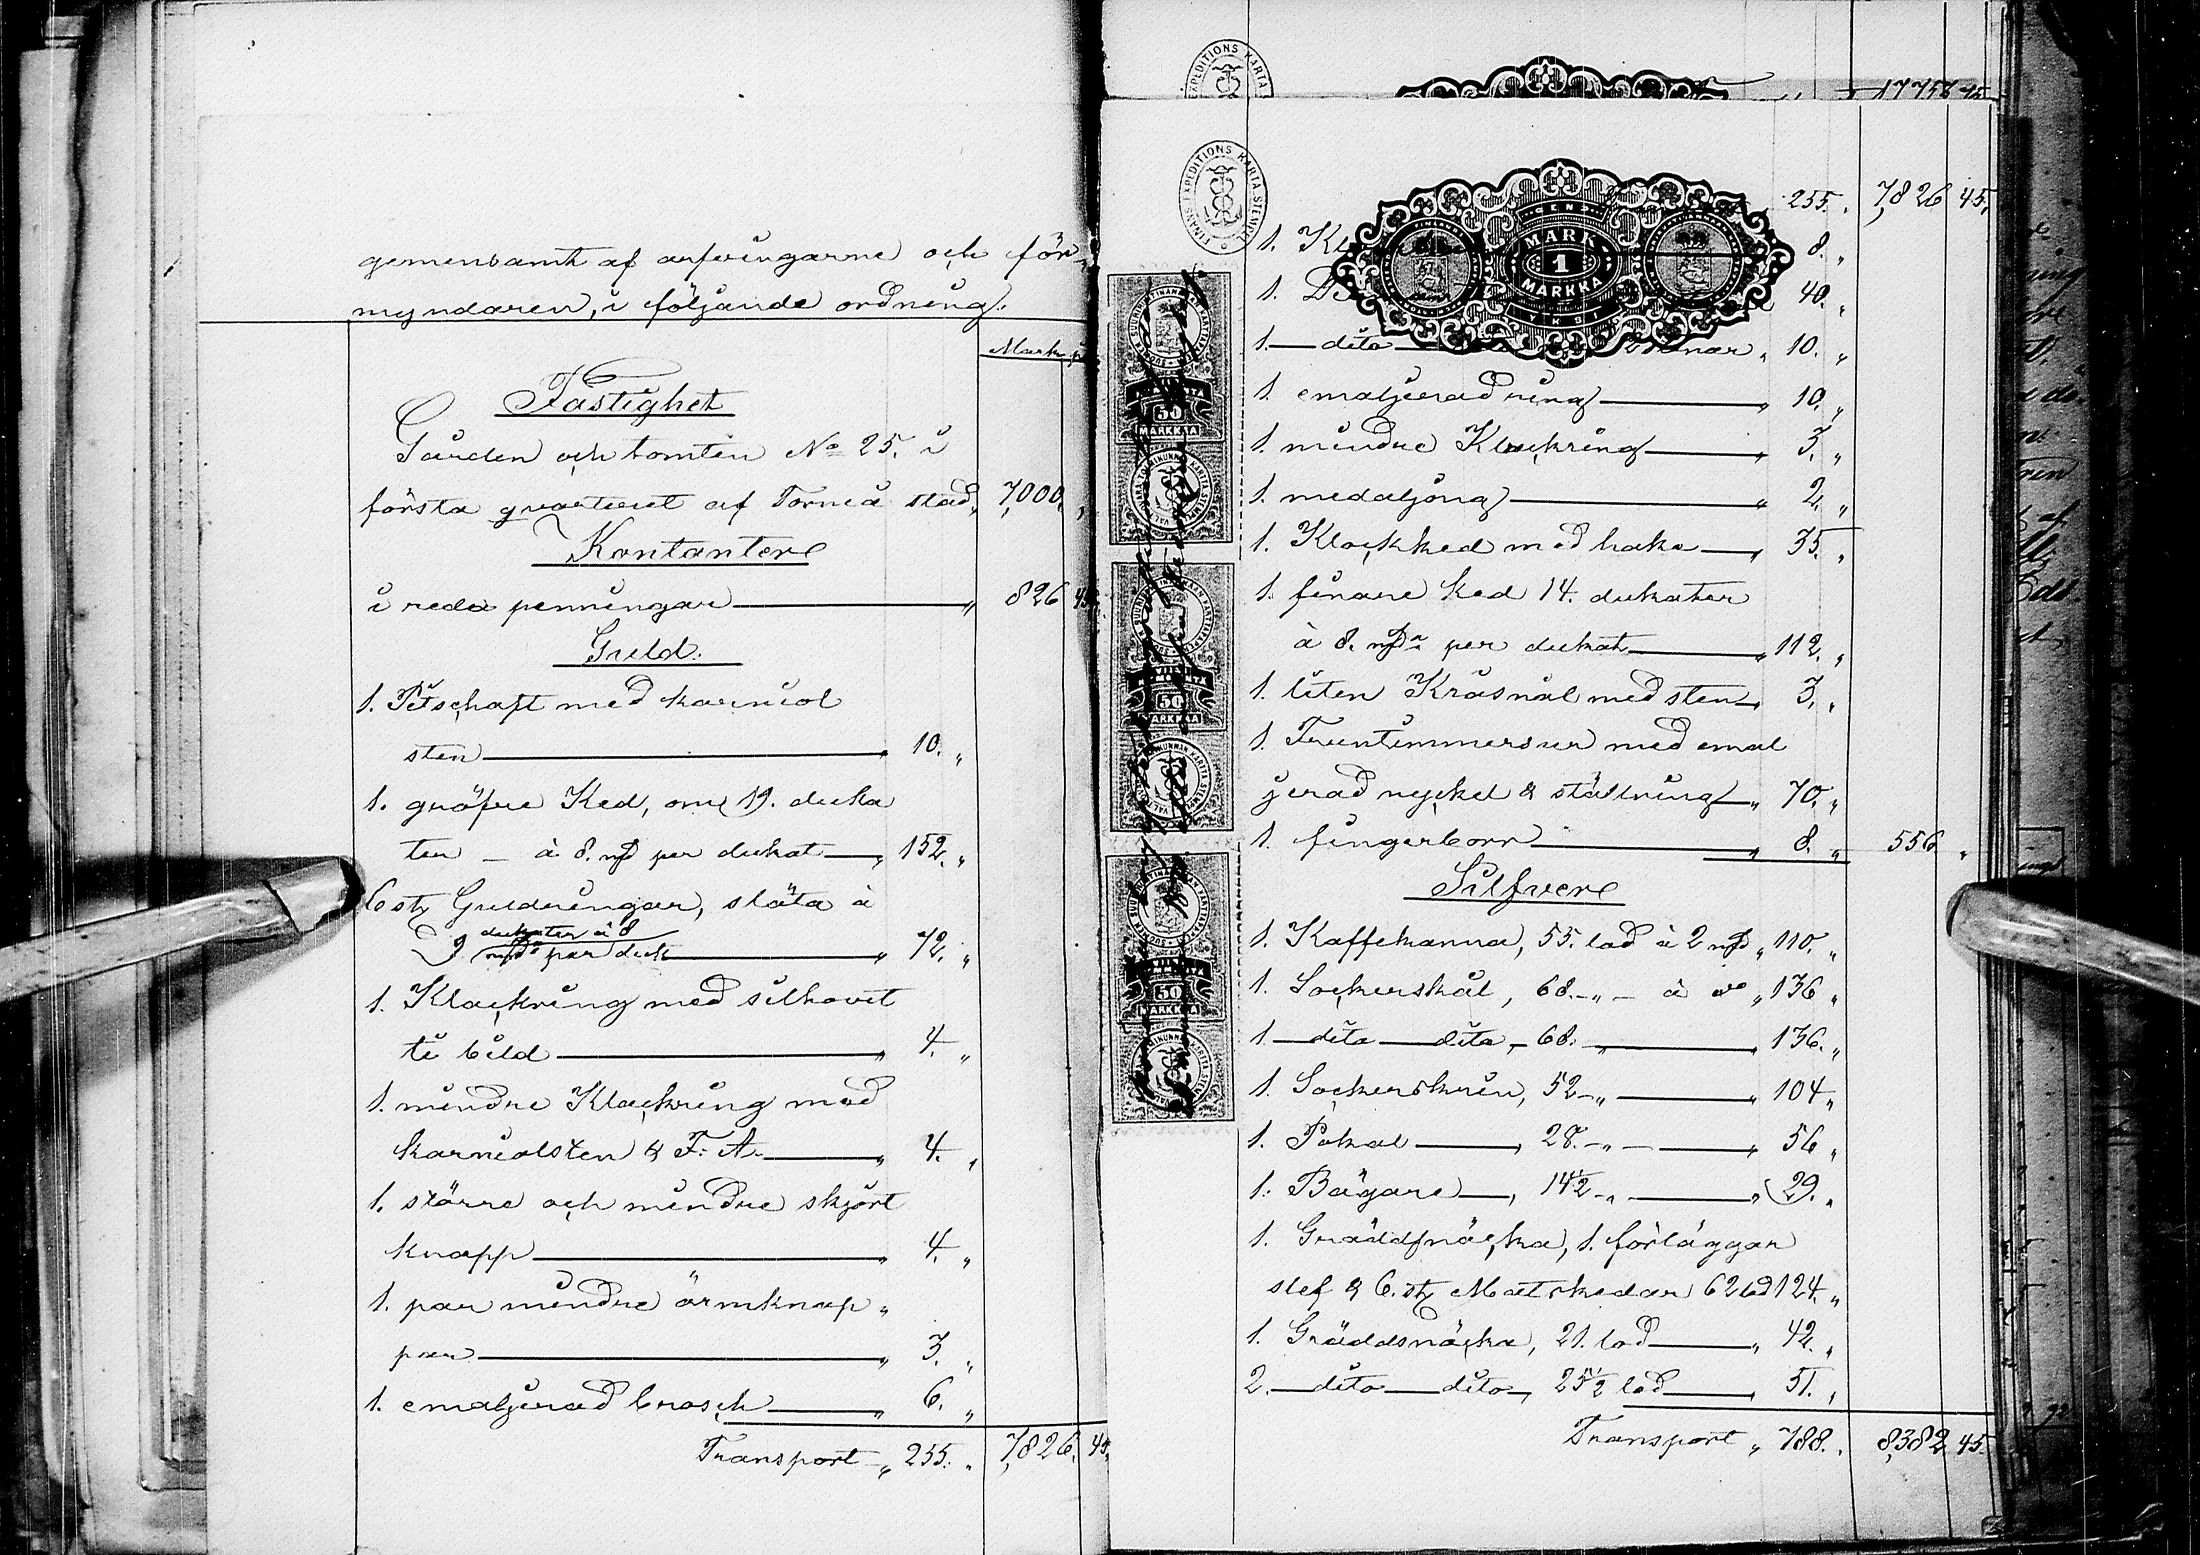 gemensamt af arfvingarne och för-
myndaren, i följande ordning:
Mark p
Fastighet
Gården och tomten No 25. i
första qvarteret af Torneå stad „ 7,000. „
Kontanter
i reda penningar „ 826 45
Guld.
1. Pitschaft med karniol
sten „ 10. „
1. gröfre Ked, om 19. duka
ter – à 8. mk per dukat „ 152. „
6 st Guldringar, släta à
9 dukater à 8
mk per duk „ 72. „
1. Klackring med silhouet
te bild „ 4. „
1. mindre Klackring med
karniolsten & F. A. „ 4. „
1. större och mindre skjort
knapp „ 4. „
1. par mindre ärmknap „
par „ 3. „
1. emaljerad brosch „ 6. „
Transport „ 255. „ 7,826. 45.
17756 45
FINANS EXPEDITIONS KARTA STEMPEL
MARK
1
MARKKA
YKSI
255. „ 7,826 45.
1. 8. „
1. 40. „
1. dito „ 10. „
1. emaljerad ring „ 10. „
1. mindre Klackring „ 3. „
1. medaljong „ 2. „
1. Klockked med hake „ 35. „
1. finare Ked 14. dukater
à 8. mk per dukat „ 112. „
1. liten Kråsnål med sten „ 3. „
1. Fruntimmersur med emal
jerad nyckel & ställning „ 70. „
1. fingerborr „ 8. „ 556 „
Silfver
1. Kaffekanna, 55. lod à 2 mk „ 110. „
1. Sockerskål, 68. – „ – à do „ 136 „
1. dito dito, 68. „ „ 136. „
1. Sockerskrin, 52 – „ – „ 104 „
1. Pokal, 28. – „ – „ 56 „
1. Bägare, 14½ – „ „ 29. „
1. Gräddsnäcka, 1. förläggar
slef & 6. st Matskedar 62 lod 124. „
1. Gräddsnäcka, 21. lod „ 42. „
2. dito dito, 25½ lod „ 51. „
Transport „ 788. „ 8,382 45.
50
MARKKAA
50
MARKKAA
50
MARKKAA